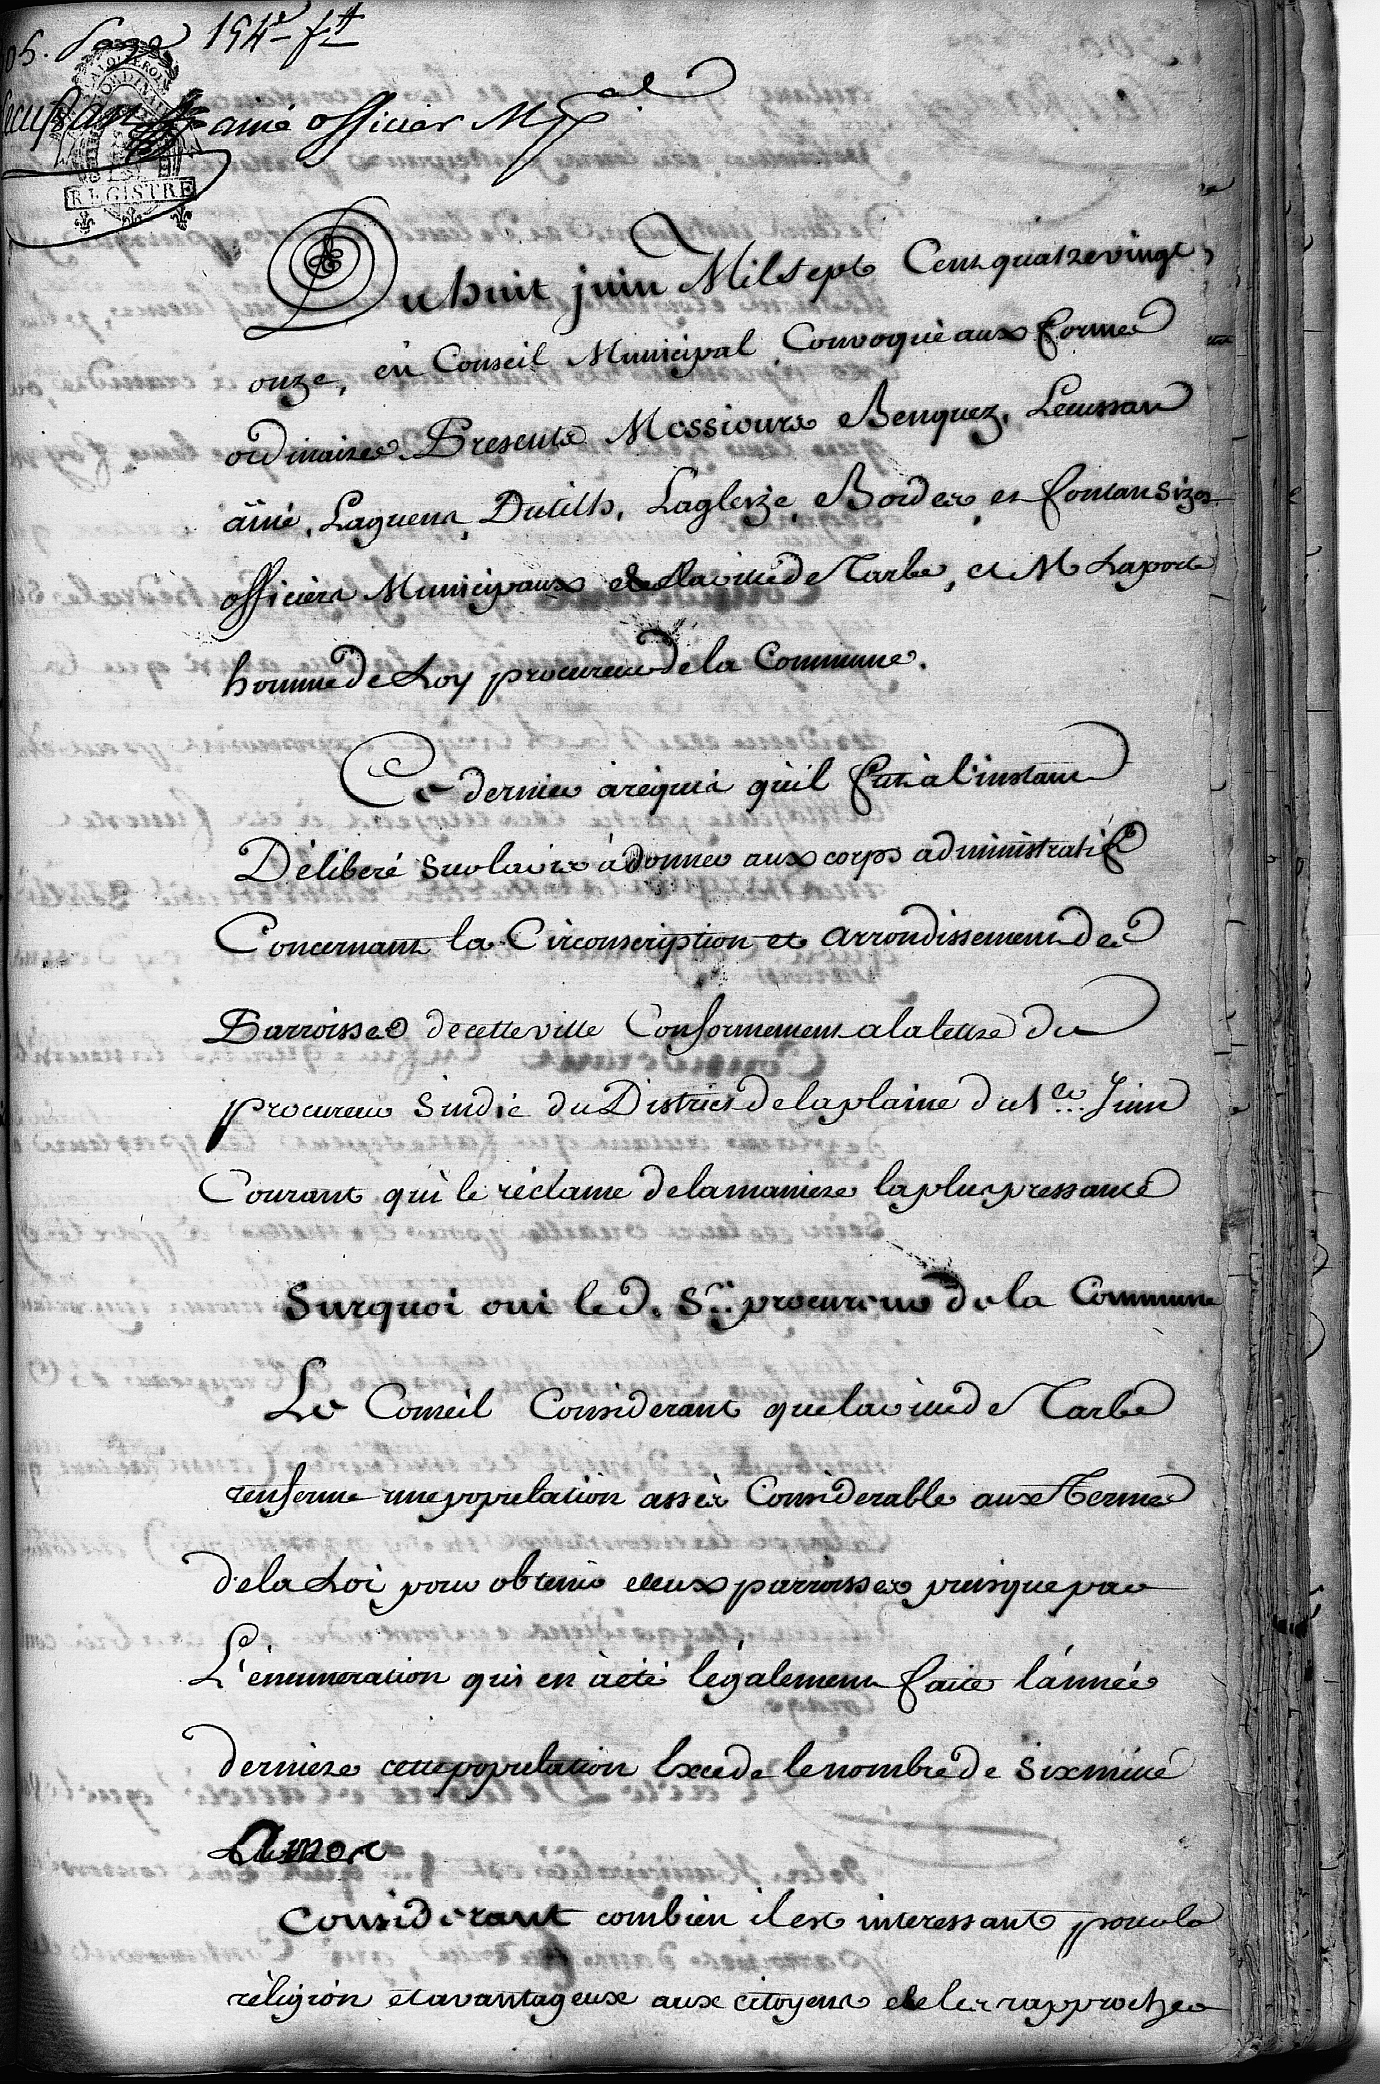 05. Page 154e ftt
Lecussan ainé officier Mpal
REGISTRE
Du huit juin Mil sept Cent quatre vingt
onze, en Conseil Municipal Convoqué aux formes
ordinaires Presents Messieurs Benquez, Lecussan
ainé, Laguens, Dutilh, Lagleize Border, et fontan sizos
officiers Municipaux de la ville de Tarbe, et M Laporte
homme de Loy procureur de la Commune.
Ce dernier a requis qu'il fut à l'instant
Déliberé sur l'avis à donner aux corps administratifs
Concernant la Circonscription et arrondissement des
Parroisses de cette ville Conformement a la lettre du
procureur Sindic du District de la plaine du 1er Juin
Courant qui le réclame de la maniere la plus pressante
Surquoi oui led. Sr. procureur de la Commune
Le Conseil Considerant que la ville de Tarbe
renferme une population assés Considerable aux Termes
de la Loi pour obtenir deux parroisses puisque par
L'énumeration qui en a été légalement faite l'année
derniere cette population Excede le nombre de six mille
Ames
Considerant combien il est interessant pour la
réligion et avantageux aux citoyens de les rapprocher